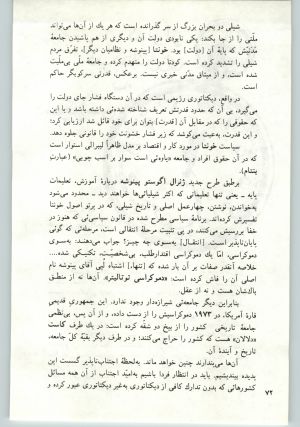 شیلی دو بحران بزرگ از سر گذرانده است که هر یك از آن‌ها می‌تواند
ملّتی را از جا بکند: یکی نابودی دولت آن و دیگری از هم پاشیدن جامعهٔ
مدنیّش که پایهٔ آن [دولت] بود. خونتا [پینوشه و نظامیان دیگر]، تفرّق مردم
شیلی را تشدید کرده است. کودتا دولت را منهدم کرده و جامعهٔ ملّی بی‌ملیت
شده است، و از میثاق مدنی خبری نیست. برعکس، قدرتی سرکوبگر حاکم
است.
در واقع، دیکتاتوری رژیمی است که در آن دستگاه فشار جای دولت را
می‌گیرد، بی آن که حدود قدرتش تعریف شناخته شده‌ئی داشته باشد و یا این
که قوائی را که در مقابل آن [قدرت] بتوان برای خود قائل شد ارزیابی کرد؛
و این قدرت، به‌عبث می‌کوشد که زیر فشار خشونت خود را قانونی جلوه دهد.
سیاست خونتا در مورد کار و اقتصاد بر مدل ظاهراً لیبرالی استوار است
که در آن حقوق افراد و جامعه «پیاده است سوار بر اسب چوبی» (عبارت
بنتام).
برطبق طرح جدید ژنرال آگوستو پینوشه دربارهٔ آموزش، تعلیمات
پایه – یعنی تنها تعلیماتی که اکثر شیلیائی‌ها خواهند دید – محدود می‌شود
به‌خواندن، نوشتن، چهارعمل اصلی و تاریخ شیلی، که در پرتو اصول خونتا
تفسیرش کرده‌اند. برنامهٔ سیاسی مطرح شده در قانون سیاسی‌ئی که هنوز در
خفا بررسیش می‌کنند، در پی تثبیت مرحلهٔ انتقالی است، مرحله‌ئی که گوئی
پایان‌ناپذیر است. [انتقال] به‌سوی چه چیز؟ جواب می‌دهند: به‌سوی
دموکراسی، امّا یك دموکراسی اقتدارطلب، بی‌شخصیّت، تکنیکی شده....
خلاصه آنقدر صفات بر آن بار شده که [تنها،] اشتباه لپّی آقای پینوشه نام
اصلی آن را فاش کرده است: «دموکراسی توتالیتر». آن‌ها نه از منطق
باکشان هست و نه از عقل.
بنابراین دیگر جامعه‌ئی شیرازه‌دار وجود ندارد. این جمهوری قدیمی
قارهٔ آمریکا، در ۱۹۷۳ دموکراسیش را از دست داده، و از آن پس، بی‌نظمی
جامعهٔ تاریخی کشور را از بیخ دو شقّه کرده است: در یك طرف کاست
«دلالان» هست که کشور را حراج می‌کنند؛ و در طرف دیگر بقیّهٔ کلّ جامعه،
تاریخ و آیندهٔ آن.
آن‌ها می‌پندارند چنین خواهد ماند. به‌لحظهٔ اجتناب‌ناپذیر گسست این
پدیده بیندیشیم. باید در انتظار فردا باشیم به‌امید اجتناب از آن همه مسائل
کشورهائی که بدون تدارك کافی از دیکتاتوری به‌غیر دیکتاتوری عبور کرده و
۷۲